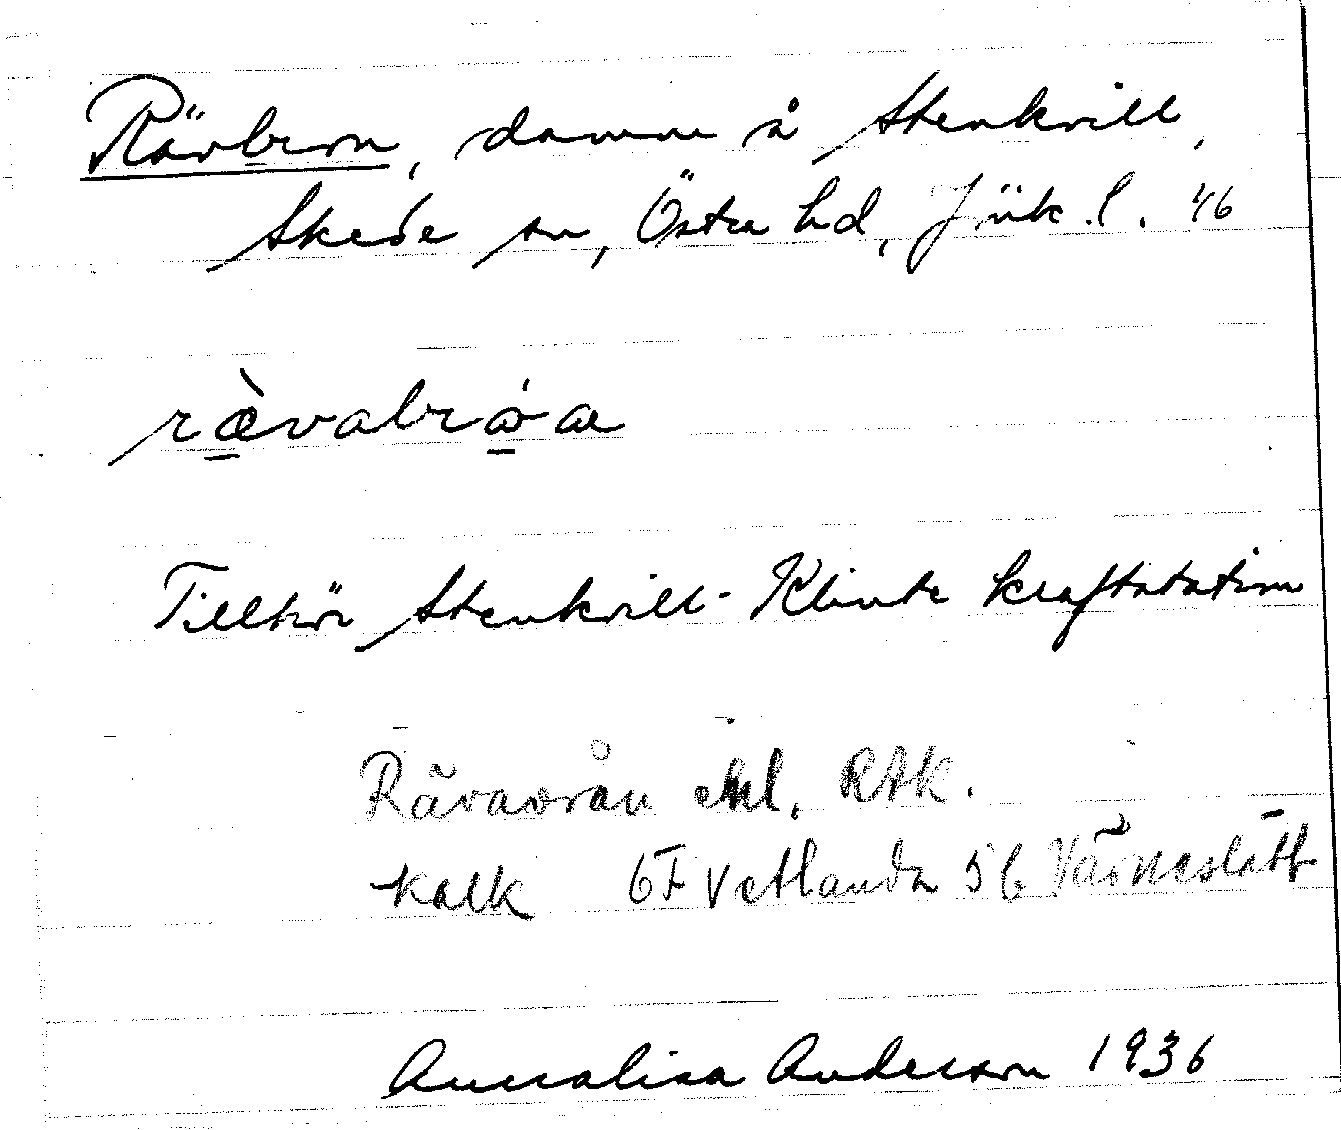 Rävbron, damm å Stenkvill,
Skede sn, Östra hd, Jönk. l. 46
rävabróa
Tillhör Stenkvill-Klinte kraftstation
Rävavrån ekl. RAK.
kalk 6F Vetlanda 5b Värneslätt
Annalisa Anderson 1936